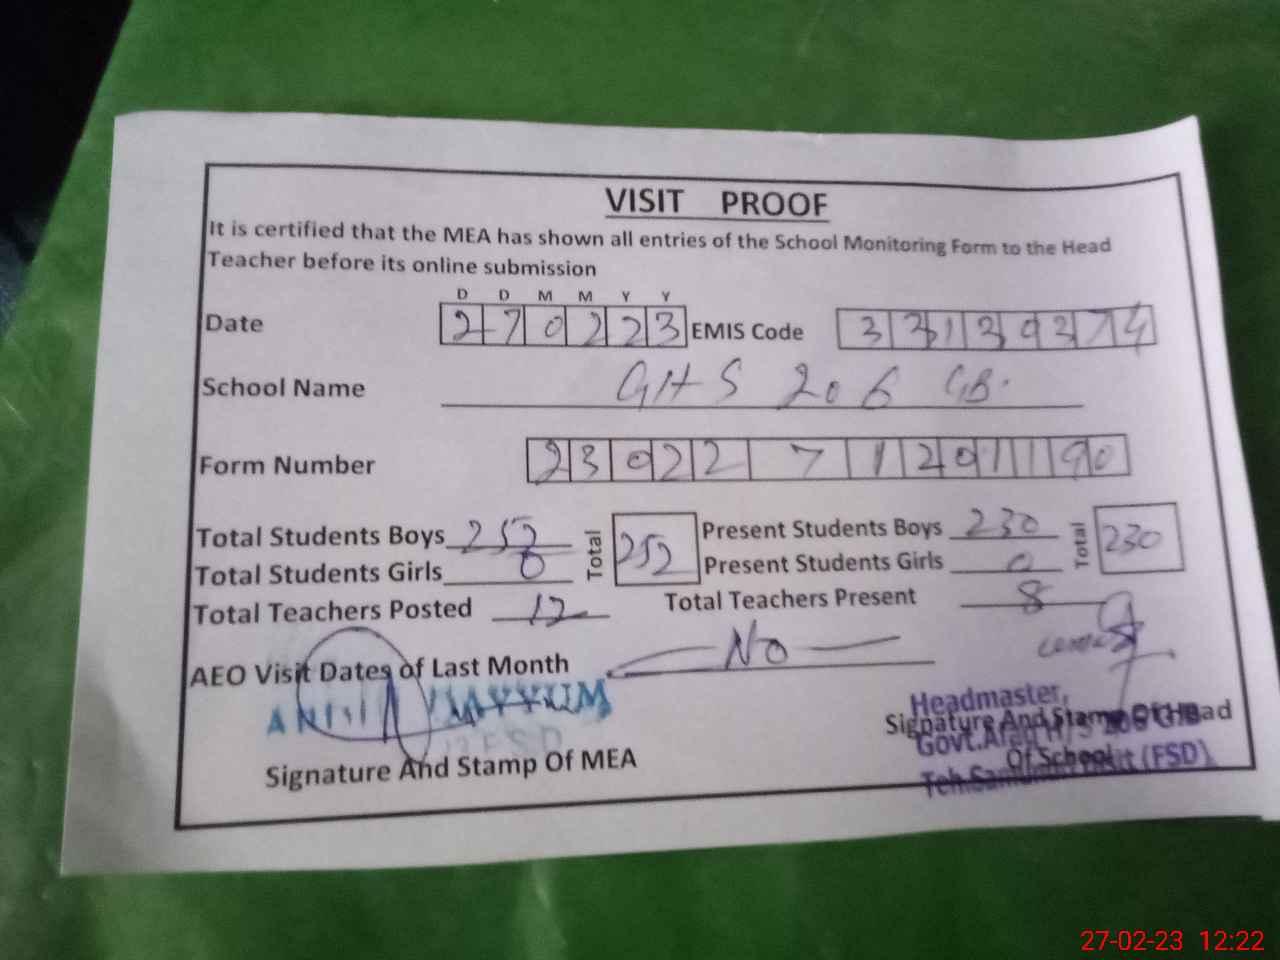 VISIT PROOF
It is certified that the MEA has shown all entries of the School Monitoring Form to the Head
Teacher before its online submission
D D M M Y Y
Date 270223 EMIS Code
School Name GHS 206 GB.
Form Number 23022 7 1201190
Total Students Boys 252 Total 252 Present Students Boys 230 Total 230
Total Students Girls 0 Present Students Girls 0
Total Teachers Posted 12 Total Teachers Present 8
AEO Visit Dates of Last Month No
Headmaster,
Signature And Stamp Of MEA
Signature And Stamp Of Head
Of School
Govt.
(FSD)
27-02-23 12:22